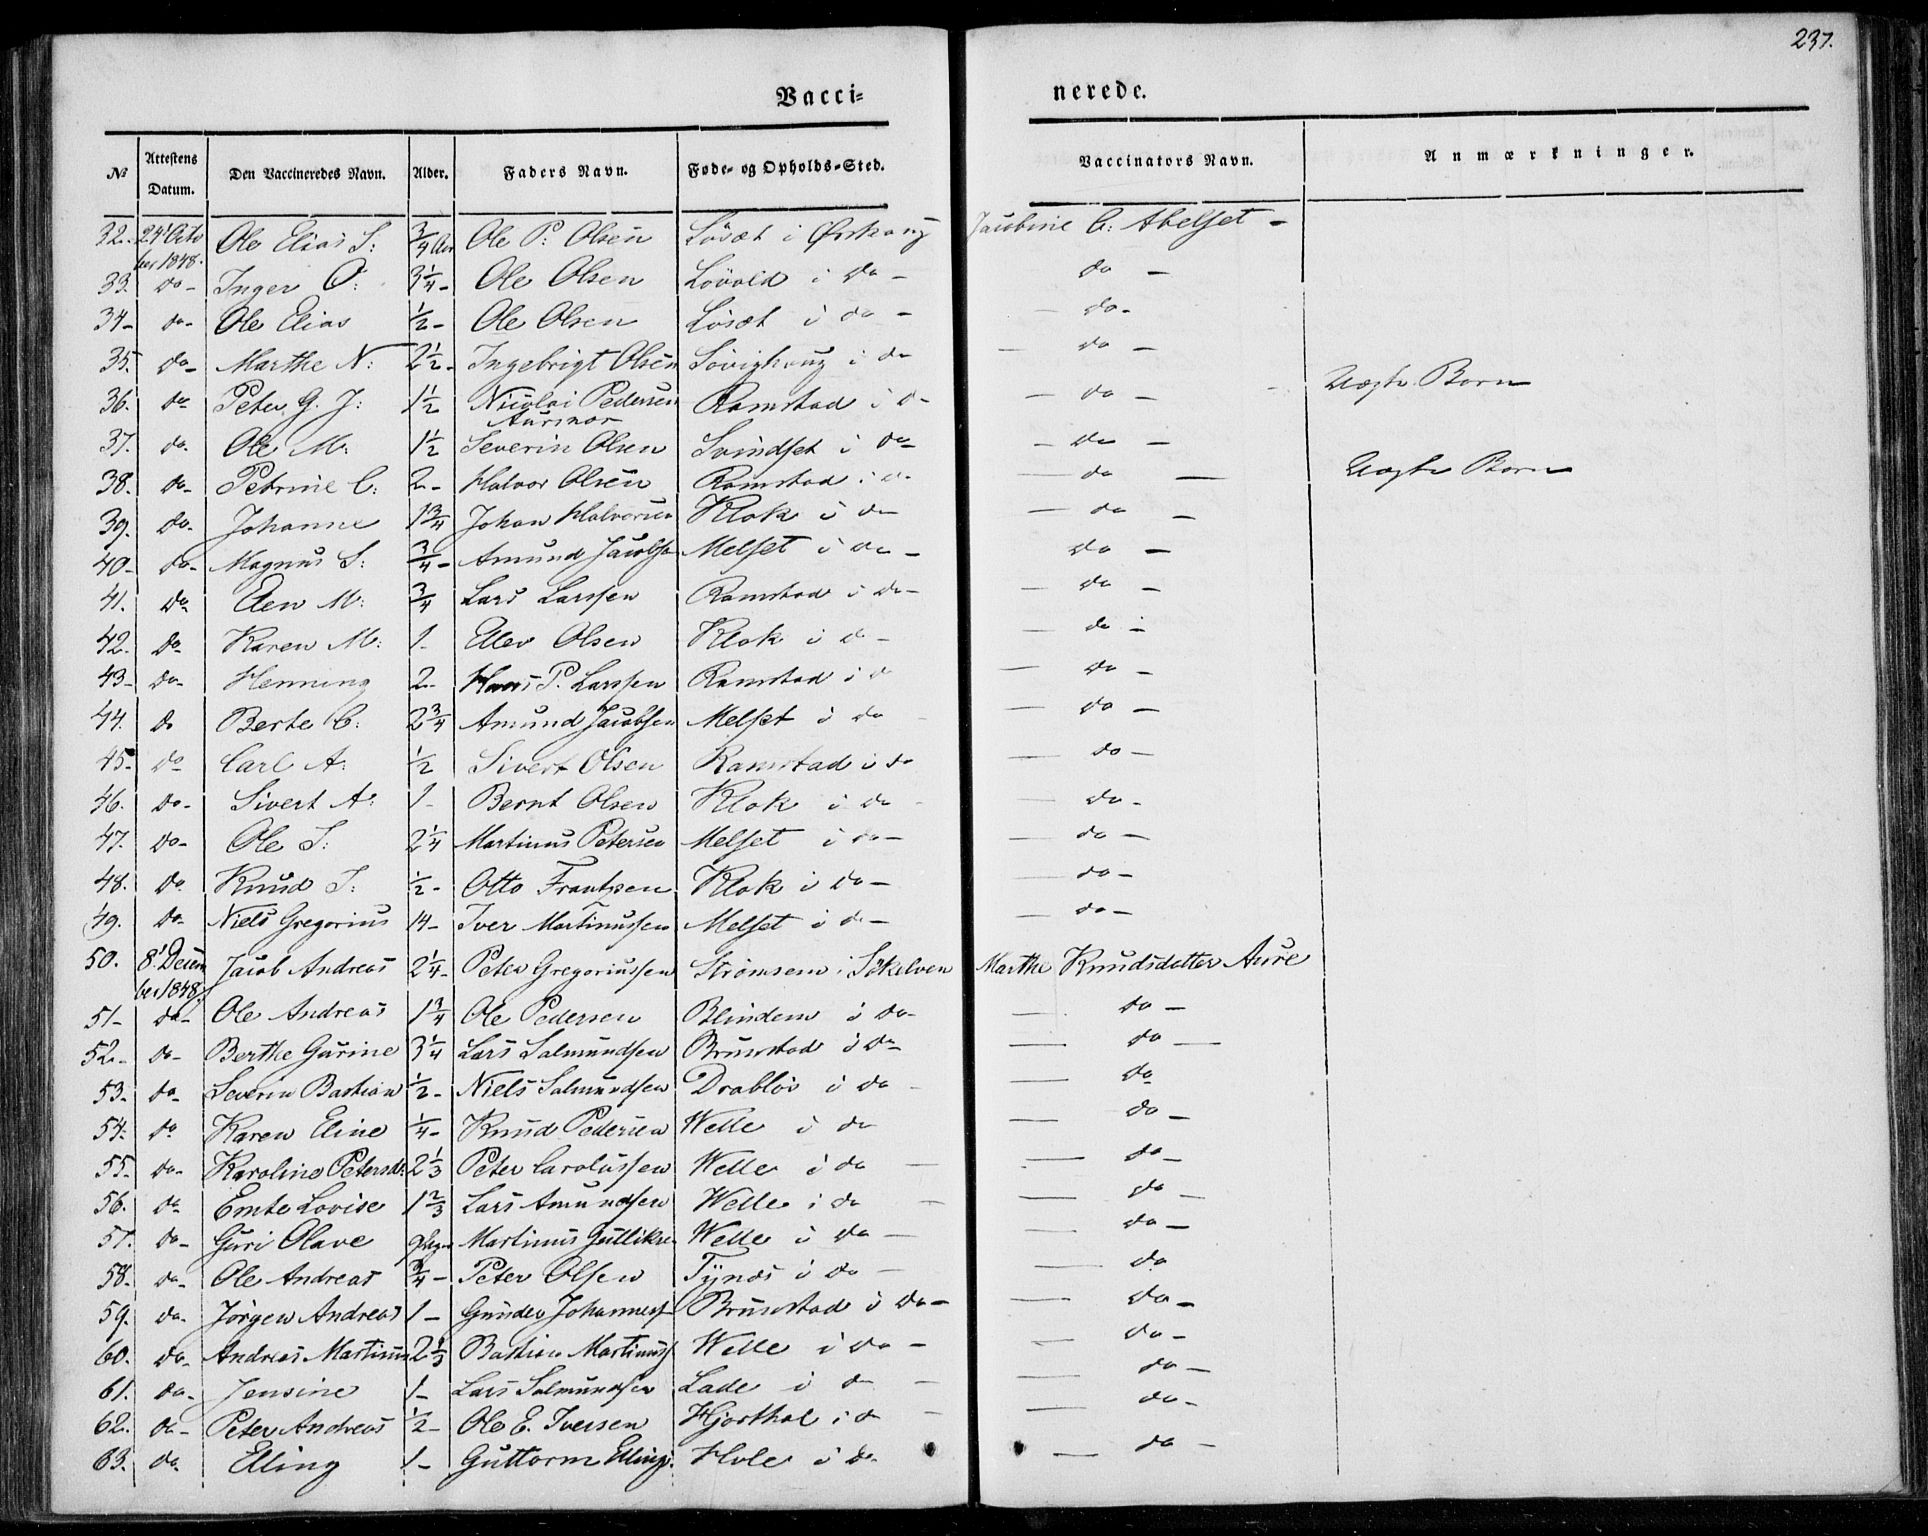 237.
Vacci-
nerede.
№ Attestens Datum. Den Vaccineredes Navn. Alder. Faders Navn. Føde- og Opholds-Sted. Vaccinators Navn. Anmærkninger.
32. 24' Octo ber 1848. Ole Elias S: 3/4 Aar Ole P: Olsen Løsæt i Ørskoug Jacobine C: Abelset -
33. do- Inger O: 3 1/4- Ole Olsen Løvold i do - do -
34- do- Ole Elias 1/2- Ole Olsen Løsæt i do - - do-
35. do- Marthe N: 2 1/2- Ingebrigt Olsen Søvighoug i do - do -
36. do- Peter G. J: 1 1/2 Nicolai Pedersen Aursnor Ramstad i d- - do - Uægte Born
37. do- Ole M: 1 1/2 Severin Olsen Svindset i do - do -
38. do- Petrine C: 2- Halvor Olsen Ramstad i do - do - Uægte Born
39. do- Johanne 1 3/4 Johan Halvorsen Klok i do - do -
40- do- Magnus S: 3/4- Amund Jacobse Melset i do - do -
41. do- Elen M: 3/4 Lars Larssen Ramstad i do- - do -
42. do- Karen M: 1- Ellev Olsen Klok i d- - do -
43- do- Henning 2- Hans P. Larssen Ramstad i d - do -
44. d Berte C: 2 3/4 Amund Jacobsen Melset i do - do -
45. do Carl A: 1/2 Sivert Olsen Ramstad i do - do -
46. do- Sivert A: 1- Bernt Olsen Klok i do - do-
47. do- Ole S: 2 1/4 Martinus Petersen Melset i do- - do -
48. do Knud S: 1/2- Otto Frantzen Klok i do- - do-
49. do- Niels Gregorius 14- Iver Martinussen Melset i d- - do-
50. 8' Decem ber 1848. Jacob Andreas 2 1/4- Peter Gregoriussen Strømsem i Søkelven Marthe Knudsdatter Aure
51- do- Ole Andreas 1 3/4 Ole Pedersen Blindem i do- - do -
52- do- Berthe Gurine 3 1/4 Lars Salmundsen Brunstad i do - do -
53. do- Severin Bastian 1/2- Niels Salmundsen Drabløs i do - do
54. do Karen Eline 1/4- Knud Pedersen Welle i do - do -
55. do- Karoline Petersd: 2 1/3 Peter Carolussen Welle i do - - do -
56. do Emte Lovise 1 2/3 Lars Amundsen Welle i do - - do -
57. do- Guri Olave Martinus Gutlikse Welle i do - - do -
58. do- Ole Andreas 3/4- Peter Olsen Tynes i do - - do
59. do- Jørgen Andreas 1- Gunder Johanness Brunstad i do- - do-
60. do- Andreas Martinus 2 1/3 Bastian Martinuss Welle i do - - do-
61. do- Jensine 1- Lars Salmundsen Lade i d - - do -
62. do- Peter Andreas 1/2- Ole E. Iversen Hjorthol i d - - do-
63. do- Elling 1- Guttorm Ellings. Hole i do - do -